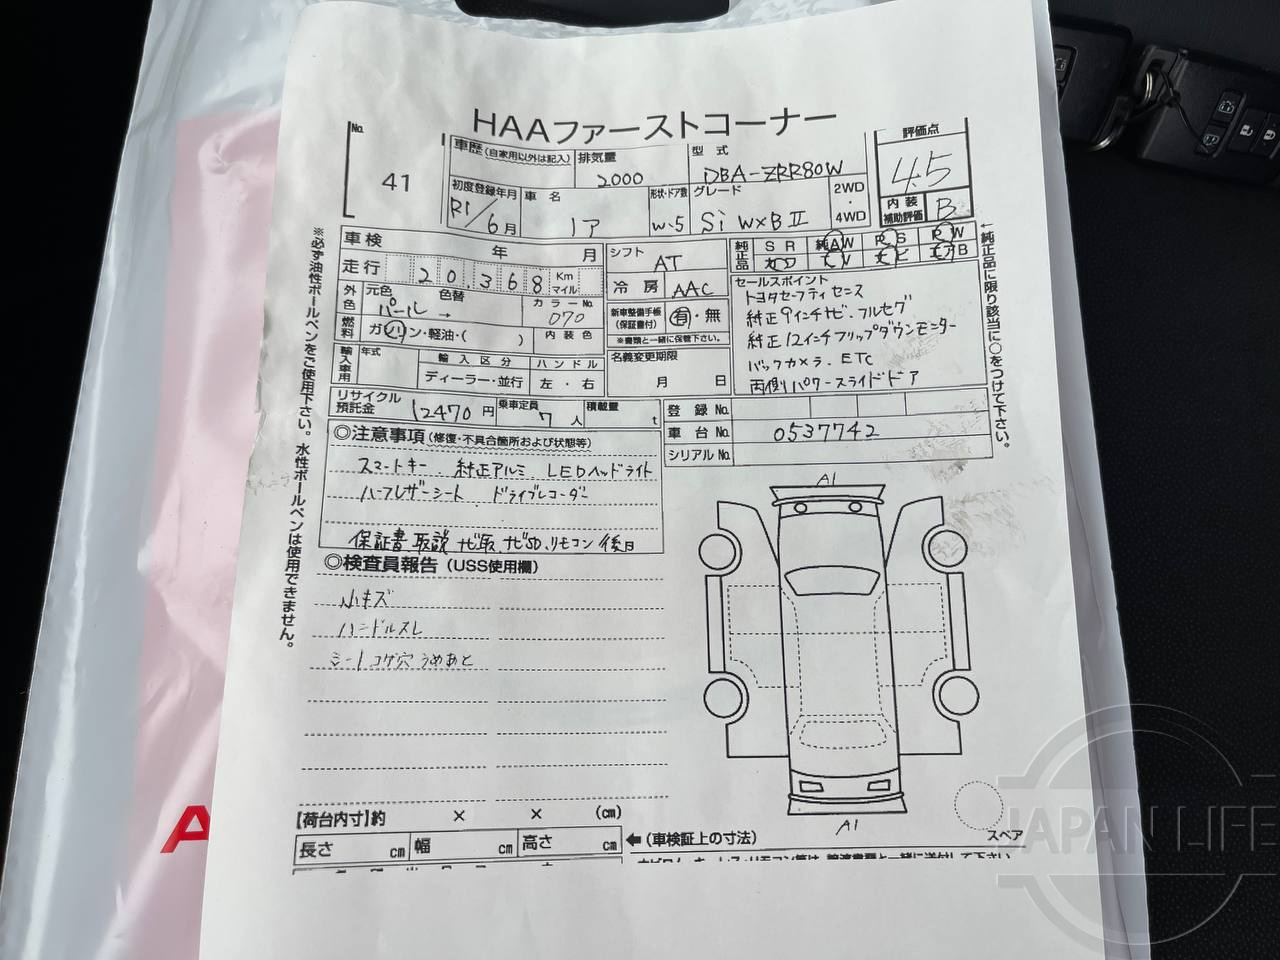 HAAファーストコーナー
No.
41
車歴(自家用以外は記入)
排気量
2000
型 式
DBA-ZRR80W
評価点
4.5
初度登録年月
R1/6月
車 名
ノア
形状・ドア数
W・5
グレード
Si W×BⅡ
2WD
・
4WD
内 装
補助評価
B
車検 年 月
シフト
AT
純正品
SR 純AW PS PW
走行 20,368 Km マイル
冷 房
AAC
セールスポイント
トヨタセーフティセンス
純正9インチナビ.フルセグ
純正12インチフリップダウンモニター
バックカメラ.ETC
両側パワースライドドア
外色
元色 色替
パール →
カラーNo.
070
新車整備手帳
(保証書付)
有・無
※書類と一緒に保管下さい。
燃料
ガソリン・軽油・( )
内 装 色
輸入車用
年式
輸 入 区 分
ディーラー・並行
ハ ン ド ル
左 ・ 右
名義変更期限
月 日
リサイクル
預託金
12470円
乗車定員
7人
積載量
t
登 録 No.
車 台 No. 0537742
シリアルNo.
◎注意事項(修復・不具合箇所および状態等)
スマートキー. 純正アルミ. LEDヘッドライト
ハーフレザーシート ドライブレコーダー
保証書.取説 ナビ取.ナビSD.リモコン後日
◎検査員報告(USS使用欄)
小キズ
ハンドルスレ
シートコゲ穴うめあと
A1
A1
スペア
【荷台内寸】約 × × (cm)
長さ cm 幅 cm 高さ cm
←(車検証上の寸法)
※必ず油性ボールペンをご使用下さい。水性ボールペンは使用できません。
←純正品に限り該当に○をつけて下さい。
JAPAN LIFE